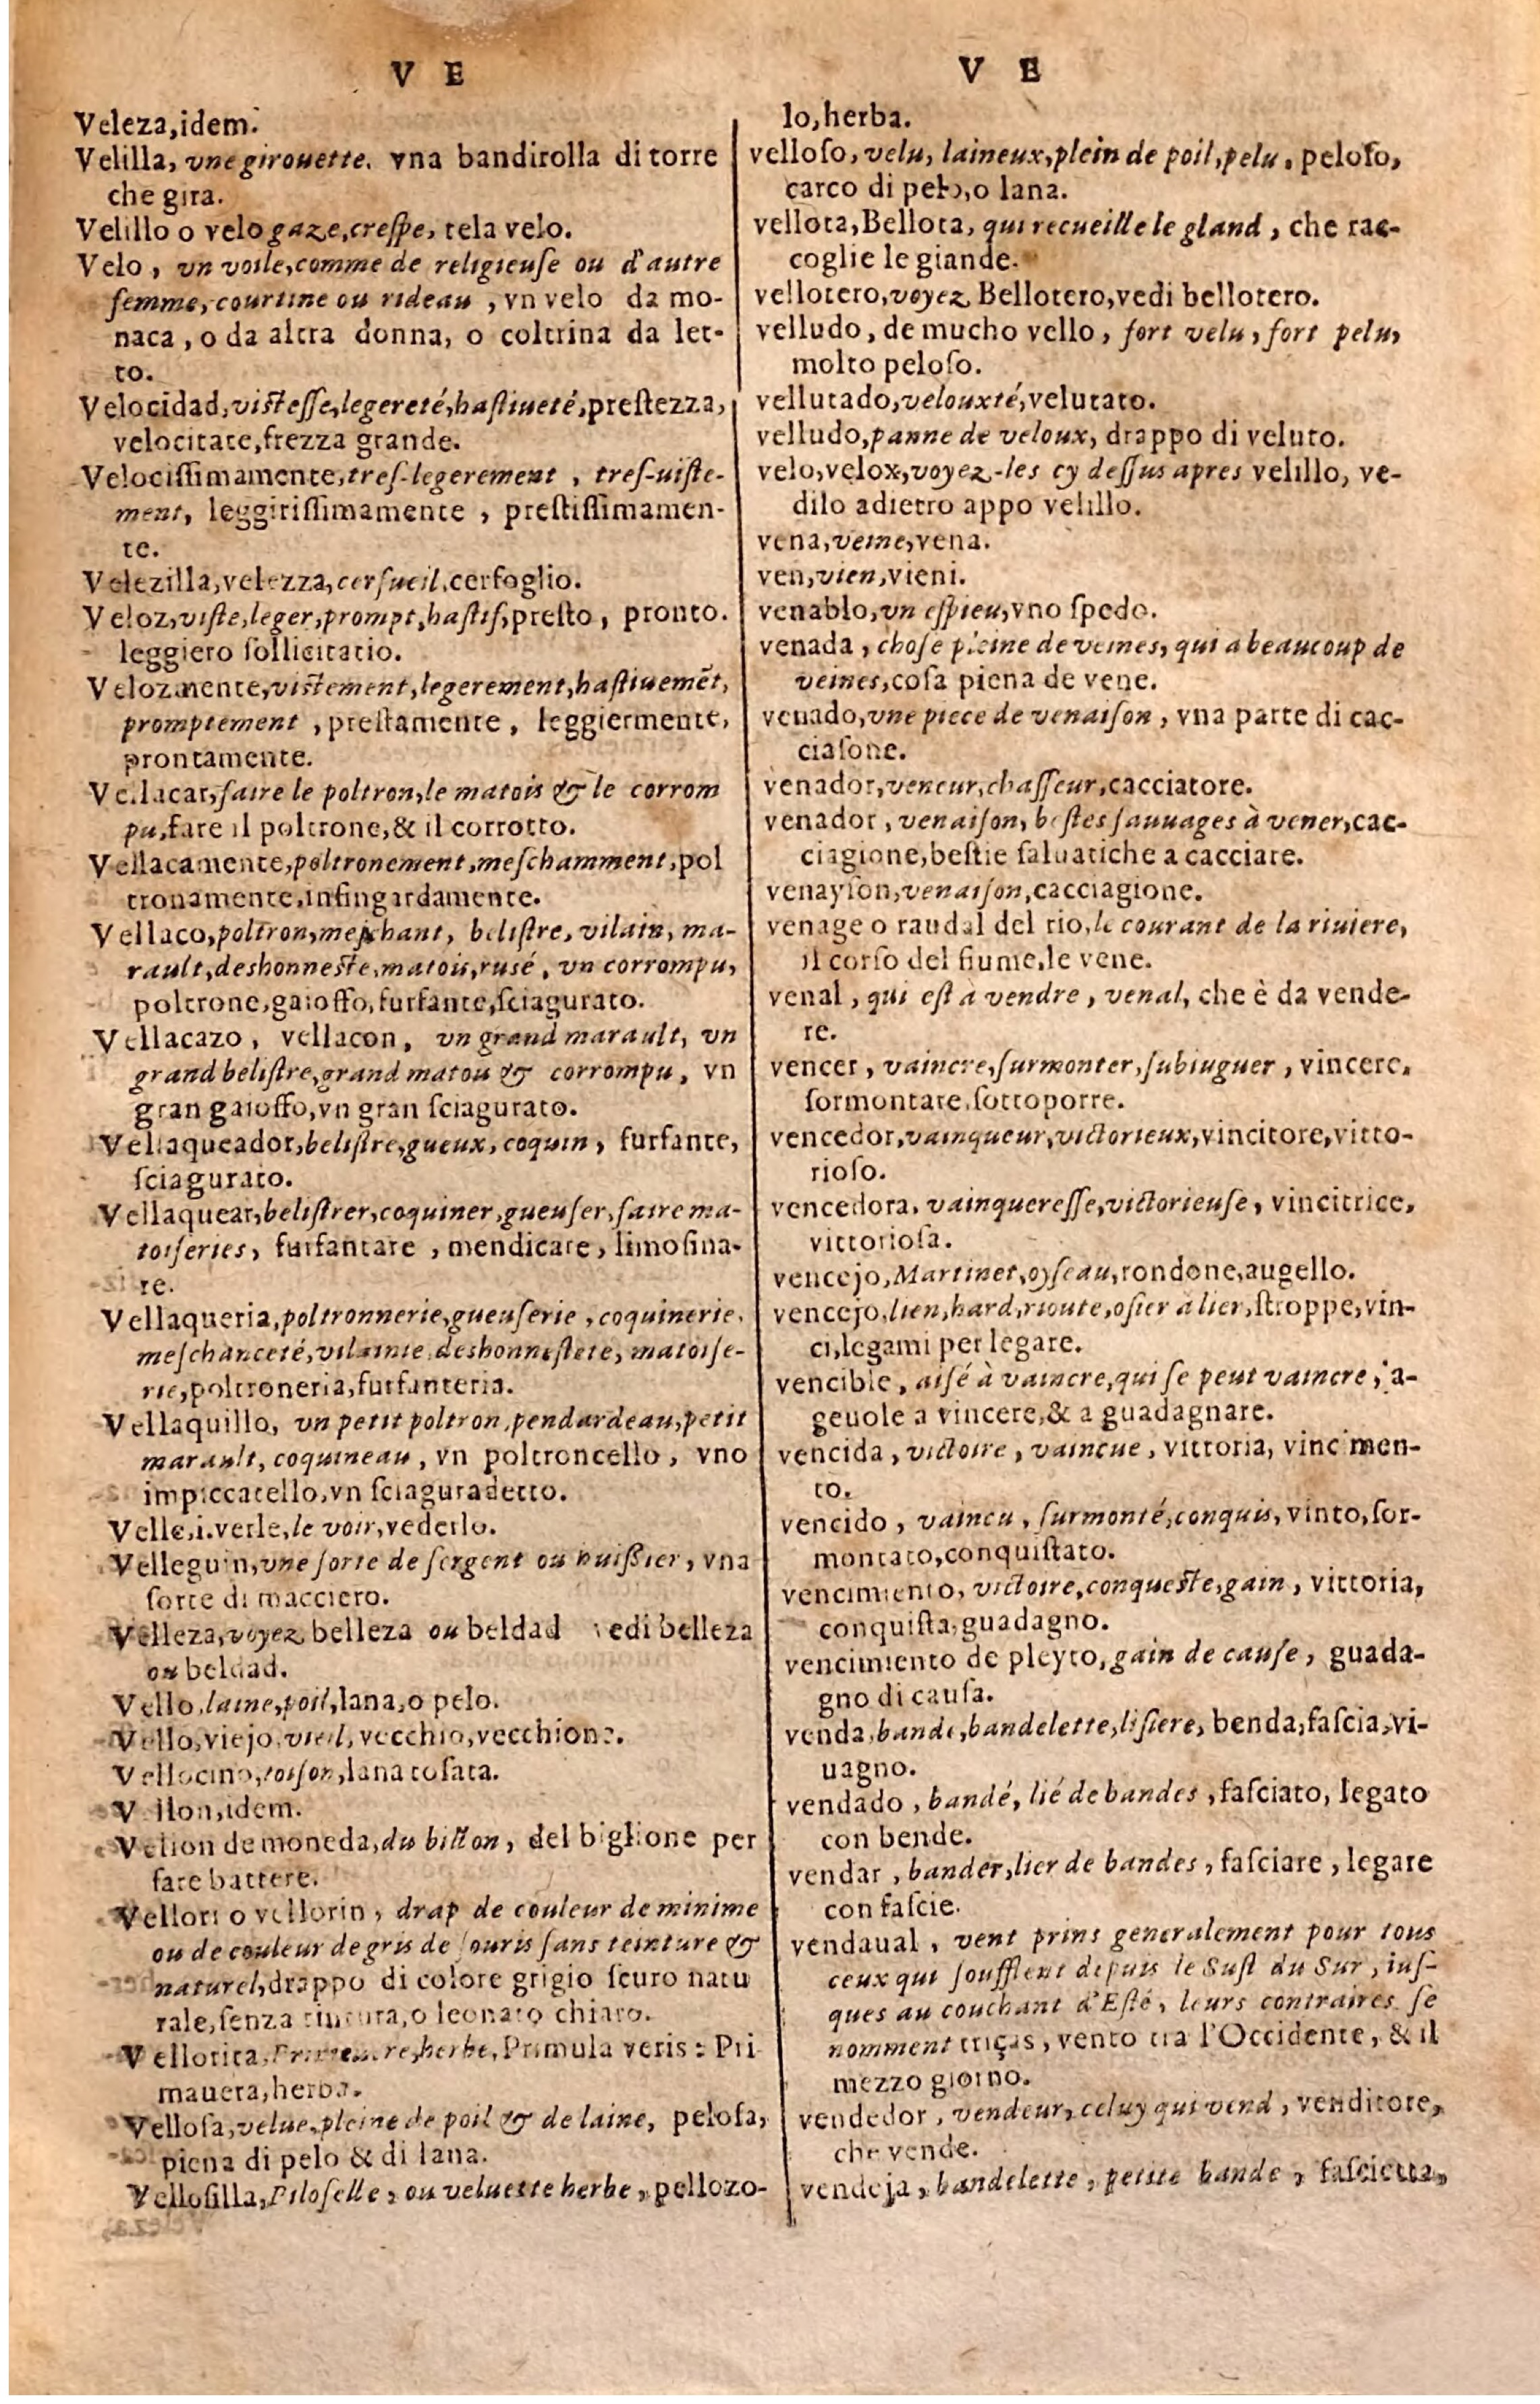 V E
Veleza,idem.
Velilla, vne girouette. vna bandirolla di torre
che gira.
Velillo o velo gaze,crespe, tela velo.
Velo, vn voile,comme de religieuſe ou d'autre
femme, courtine ou rideau, vn velo da mo-
naca, o da altra donna, o coltrina da let-
to.
Velocidad, visteſſe,legereté,haſtiueté,preſtezza,
velocitate,frezza grande.
Velociſſimamente,treſ-legerement, treſ-viſte-
ment, leggiriſſimamente, preſtiſſimamen-
te.
Velezilla,velezza,cerfueil,cerfoglio.
Veloz,viſte,leger,prompt,haſtif,preſto, pronto.
leggiero ſollicitatio.
Velozmente,viſtement,legerement,haſtiuemēt,
promptement, preſtamente, leggiermente,
prontamente.
Vellacar,faire le poltron,le matois & le corrom
pu,fare il poltrone,& il corrotto.
Vellacamente,poltronement,meſchamment,pol
tronamente,infingardamente.
Vellaco,poltron,meſchant, beliſtre, vilain, ma-
rault,deshonneſte,matois,ruſé, vn corrompu,
poltrone,gaioffo,furfante,ſciagurato.
Vellacazo, vellacon, vn grand marault, vn
grand beliſtre,grand matou & corrompu, vn
gran gaioffo,vn gran ſciagurato.
Vellaqueador,beliſtre,gueux,coquin, furfante,
ſciagurato.
Vellaquear,beliſtrer,coquiner,gueuſer,faire ma-
toiſeries, furfantare, mendicare, limoſina-
re.
Vellaqueria,poltronnerie,gueuſerie, coquinerie,
meſchanceté,vilainie,deshonneſteté, matoiſe-
rie,poltroneria,furfanteria.
Vellaquillo, vn petit poltron,pendardeau,petit
marault, coquineau, vn poltroncello, vno
impiccatello,vn ſciaguradetto.
Velle,i.verle,le voir,vederlo.
Velleguin,vne ſorte de ſergent ou huiſſier, vna
ſorte di macciero.
Velleza,voyez belleza ou beldad vedi belleza
ou beldad.
Vello,laine,poil,lana,o pelo.
Vello,viejo,vieil,vecchio,vecchione.
Vellocino,toiſon,lana toſata.
Vellon,idem.
Vellon de moneda,du billon, del biglione per
fare battere.
Vellori o vellorin, drap de couleur de minime
ou de couleur de gris de ſouris ſans teinture &
naturel,drappo di colore grigio ſcuro natu
rale,ſenza tintura,o leonato chiaro.
Vellorita,Primeuere,herbe,Primula veris: Pri
mauera,herba.
Velloſa,velue,pleine de poil & de laine, peloſa,
piena di pelo & di lana.
Velloſilla,Piloſelle, ou veluette herbe, pellozo-
V E
lo,herba.
velloſo, velu, laineux,plein de poil,pelu, peloſo,
carco di pelo,o lana.
vellota,Bellota, qui recueille le gland, che rac-
coglie le giande.
vellotero,voyez Bellotero,vedi bellotero.
velludo, de mucho vello, fort velu, fort pelu,
molto peloſo.
vellutado,velouxté,velutato.
velludo,panne de veloux, drappo di veluto.
velo,velox,voyez-les cy deſſus apres velillo, ve-
dilo adietro appo velillo.
vena,veine,vena.
ven,vien,vieni.
venablo,vn eſpieu,vno ſpedo.
venada, choſe pleine de veines, qui a beaucoup de
veines,coſa piena de vene.
venado,vne piece de venaiſon, vna parte di cac-
ciaſone.
venador,veneur,chaſſeur,cacciatore.
venador, venaiſon, beſtes ſauuages à vener,cac-
ciagione,beſtie ſaluatiche a cacciare.
venayſon,venaiſon,cacciagione.
venage o raudal del rio,le courant de la riuiere,
il corſo del fiume,le vene.
venal, qui eſt à vendre, venal, che è da vende-
re.
vencer, vaincre,ſurmonter,ſubiuguer, vincere,
ſormontare,ſottoporre.
vencedor,vainqueur,victorieux,vincitore,vitto-
rioſo.
vencedora, vainquereſſe,victorieuſe, vincitrice,
vittorioſa.
vencejo,Martinet,oyſeau,rondone,augello.
vencejo,lien,hard,rioute,oſier à lier,ſtroppe,vin-
ci,legami per legare.
vencible, aiſé à vaincre,qui ſe peut vaincre, 'a-
geuole a vincere,& a guadagnare.
vencida, victoire, vaincue, vittoria, vincimen-
to.
vencido, vaincu, ſurmonté,conquis, vinto,ſor-
montato,conquiſtato.
vencimiento, victoire,conqueſte,gain, vittoria,
conquiſta,guadagno.
vencimiento de pleyto,gain de cauſe, guada-
gno di cauſa.
venda,bande,bandelette,liſiere, benda,faſcia,vi-
uagno.
vendado, bandé, lié de bandes, faſciato, legato
con bende.
vendar, bander,lier de bandes, faſciare, legare
con faſcie.
vendaual, vent prins generalement pour tous
ceux qui ſoufflent depuis le Suſt du Sur, iuſ-
ques au couchant d'Eſté, leurs contraires ſe
nomment triças, vento tra l'Occidente, & il
mezzo giorno.
vendedor, vendeur, celuy qui vend, venditore,
che vende.
vendeja, bandelette, petite bande, faſcietta,